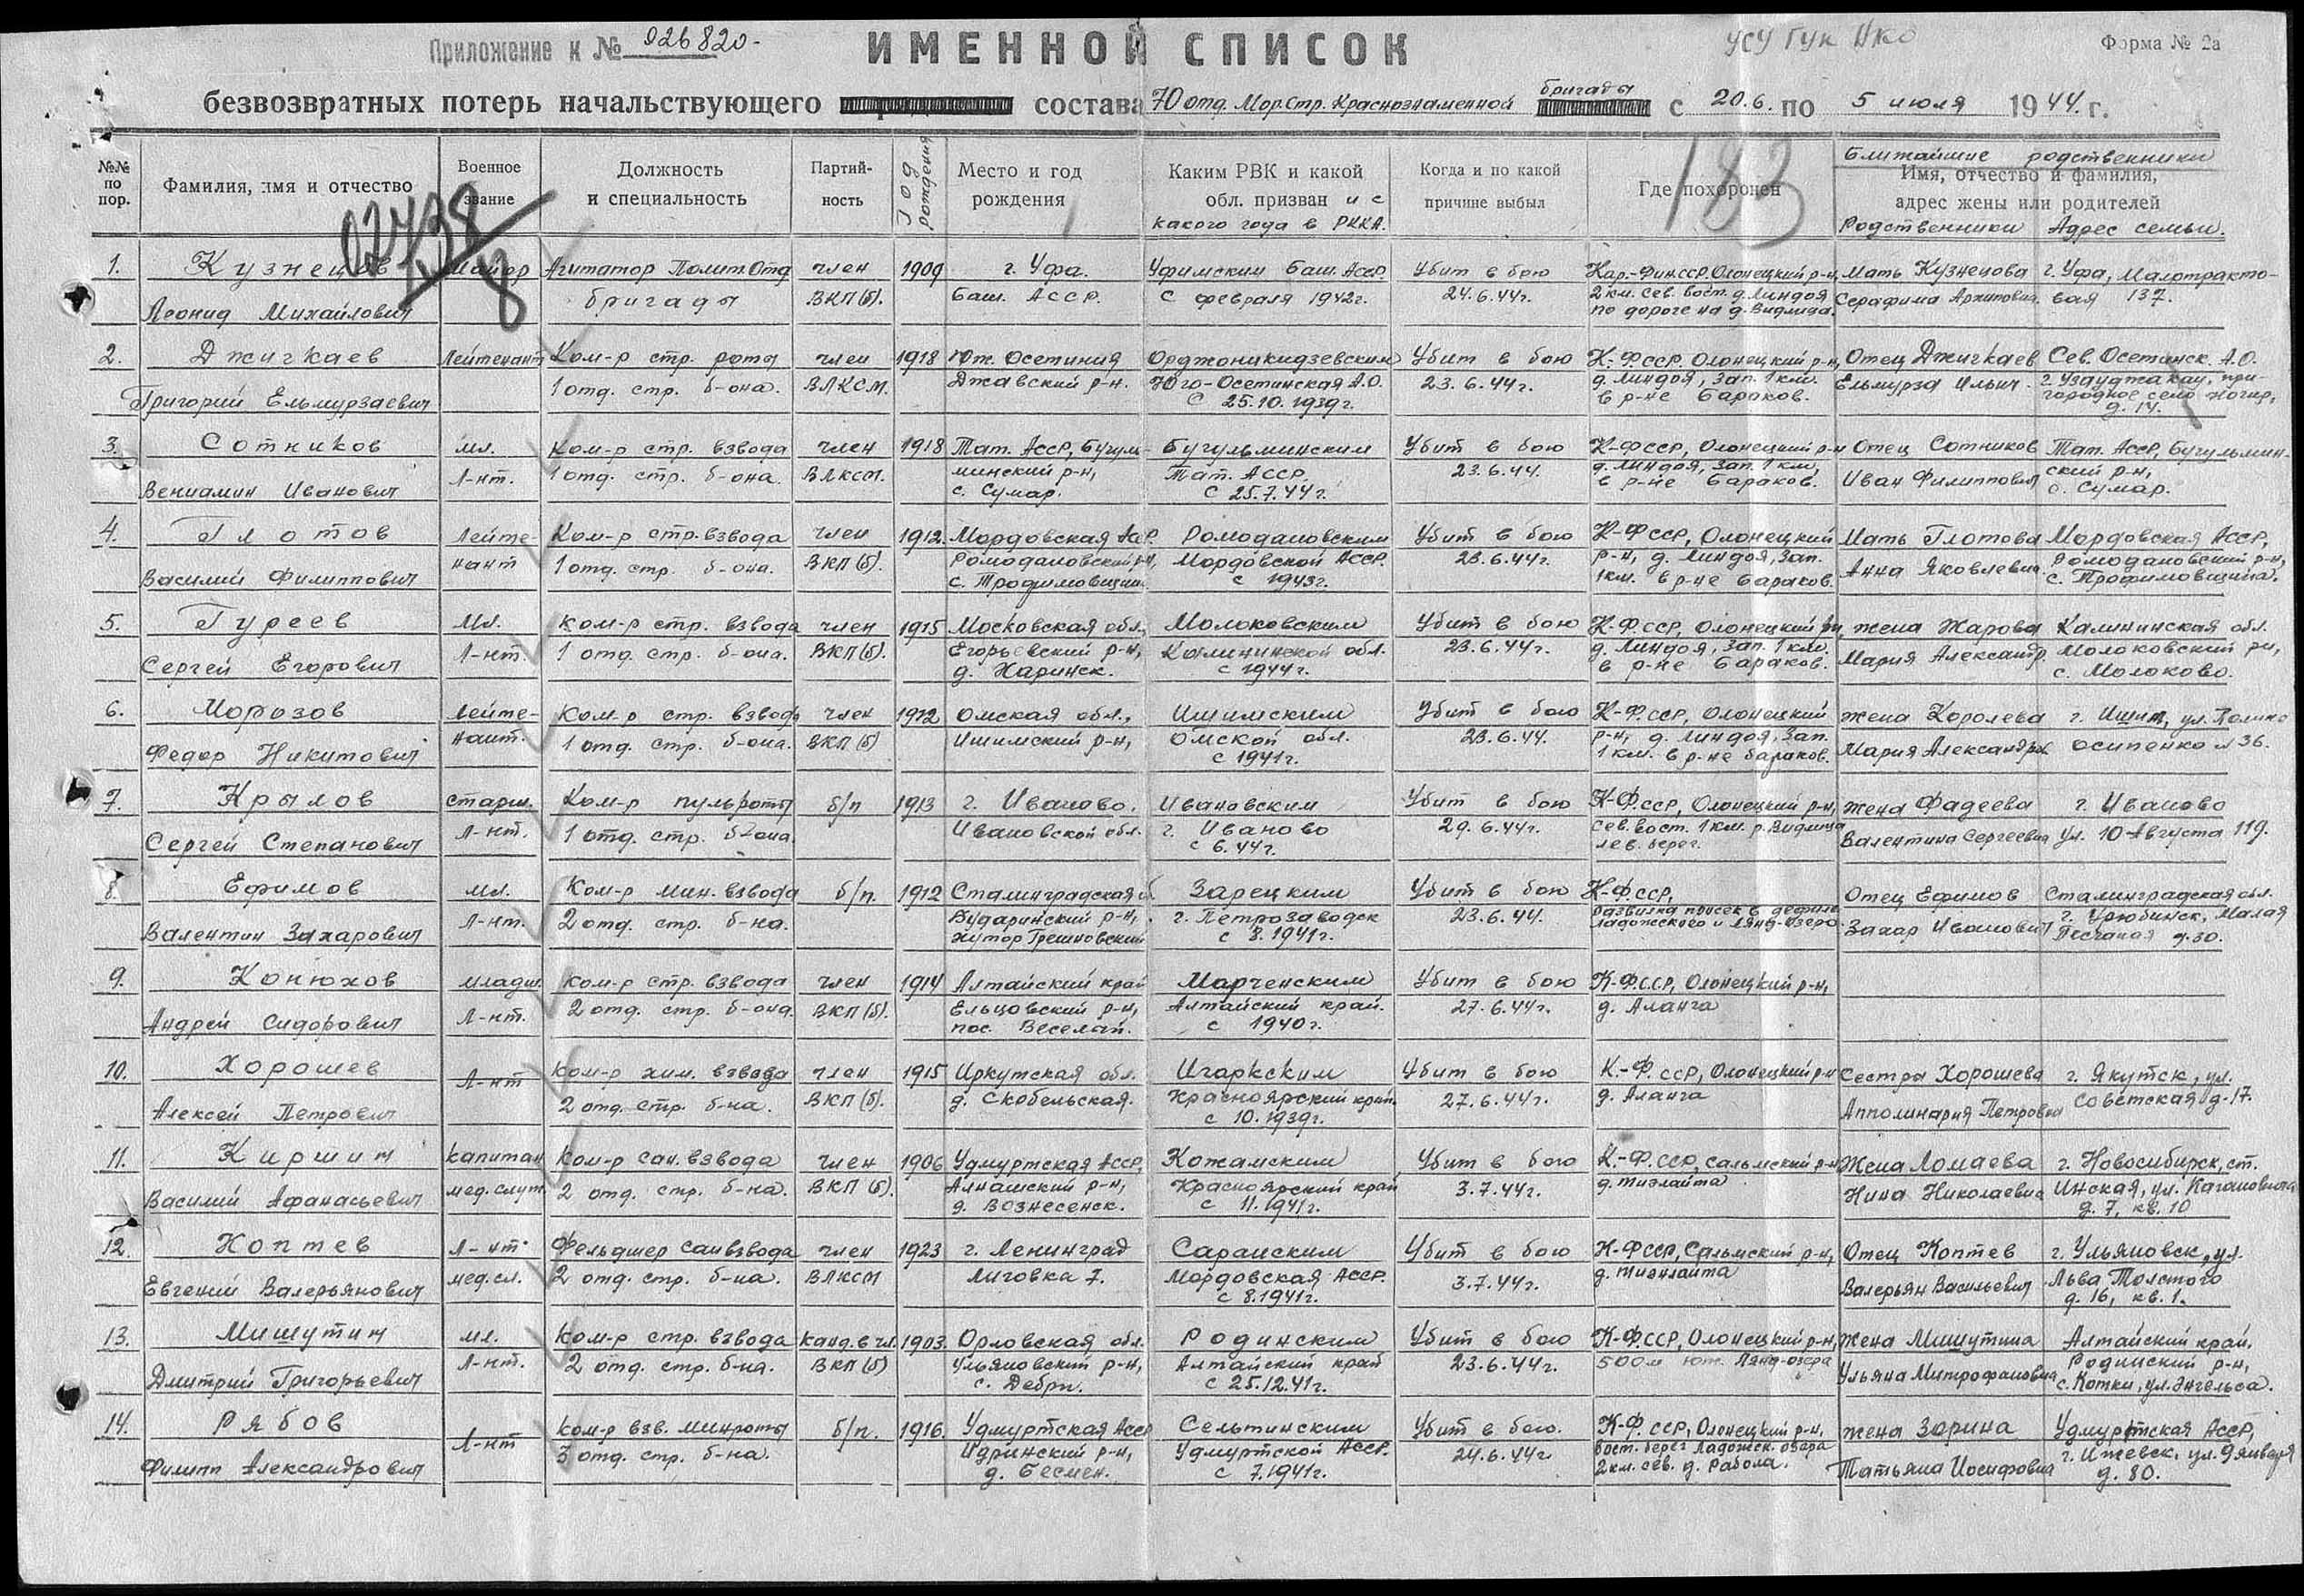 Приложение к № 026820-
ИМЕННОЙ СПИСОК
УСУ ГУК НКО
Форма № 2а
безвозвратных потерь начальствующего состава 70 отд. Мор. Стр. Краснознаменной бригады с 20.6. по 5 июля 1944 г.
183
02738
8
№№ по пор.
Фамилия, имя и отчество
Военное звание
Должность и специальность
Партийность
Год рождения
Место и год рождения
Каким РВК и какой обл. призван и с какого года в РККА.
Когда и по какой причине выбыл
Где похоронен
Ближайшие родственники
Имя, отчество и фамилия, адрес жены или родителей
Родственники Адрес семьи.
1. Кузнецов Майор Агитатор Полит.Отд член 1909 г. Уфа. Уфимским Баш. Асср. Убит в бою Кар.-Фин.сср, Олонецкий р-н, Мать Кузнецова г. Уфа, Малотракто-
Леонид Михайлович бригады ВКП(б). Баш. АССР. С февраля 1942г. 24.6.44г. 2 км. сев. вост. д. Линдоя Серафима Архиповна. вая 137.
по дороге на д. Видлица.
2. Джигкаев Лейтенант Ком-р стр. роты член 1918 Юж. Осетиния Орджоникидзевским Убит в бою К.-Ф.сср. Олонецкий р-н, Отец Джигкаев Сев. Осетинск. А.О.
Григорий Ельмурзаевич 1 отд. стр. б-она. ВЛКСМ. Джавский р-н. Юго-Осетинская А.О. 23.6.44г. д. Линдоя, зап. 1 км. Ельмурза Ильич. г. Дзауджикау, при-
С 25.10.1939г. в р-не бараков. городное село Ногир,
д. 14.
3. Сотников мл. Ком-р стр. взвода член 1918 Тат. Асср, Бугуль- Бугульминским Убит в бою К-Фсср, Олонецкий р-н Отец Сотников Тат. Асср, Бугульмин-
Вениамин Иванович Л-нт. 1 отд. стр. б-она. ВЛКСМ. минский р-н, Тат. АССР. 23.6.44. д. Линдоя, зап. 1 км, Иван Филиппович ский р-н,
с. Сумар. С 25.7.44г. в р-не бараков. с. Сумар.
4. Глотов Лейте- Ком-р стр. взвода член 1912. Мордовская Асср. Ромодановским Убит в бою К-Фсср, Олонецкий Мать Глотова Мордовская Асср,
Василий Филиппович нант 1 отд. стр. б-она. ВКП(б). Ромодановский р-н, Мордовской АССР. 23.6.44г. р-н, д. Линдоя, зап. Анна Яковлевна Ромодановский р-н,
с. Трофимовщин. с 1943г. 1 км. в р-не бараков. с. Трофимовщина.
5. Гуреев Мл. Ком-р стр. взвода член 1915 Московская обл., Молоковским Убит в бою К-Ф.сср, Олонецкий р-н, жена Жарова Калининская обл.
Сергей Егорович Л-нт. 1 отд. стр. б-она. ВКП(б). Егорьевский р-н, Калининской обл. 23.6.44г. д. Линдоя, зап. 1 км. Мария Александр. Молоковский рн,
д. Харинск. с 1944г. в р-не бараков. с. Молоково.
6. Морозов Лейте- Ком-р стр. взвода член 1922 Омская обл., Ишимским Убит в бою К-Ф.сср, Олонецкий жена Королева г. Ишим, ул. Полины
Федор Никитович нант. 1 отд. стр. б-она. ВКП(б) Ишимский р-н, Омской обл. 23.6.44. р-н, д. Линдоя, зап. Мария Александр. Осипенко № 36.
с 1941г. 1 км. в р-не бараков.
7. Крылов старш. Ком-р пульроты б/п 1913 г. Иваново. Ивановским Убит в бою К-Ф.сср, Олонецкий р-н, жена Фадеева г. Иваново
Сергей Степанович Л-нт. 1 отд. стр. б-она. Ивановской обл. г. Иваново 29.6.44г. сев. вост. 1 км. р. Видлица Валентина Сергеевна ул. 10-Августа 119.
с 6.44г. лев. берег.
8. Ефимов мл. Ком-р мин. взвода б/п. 1912 Сталинградская об. Зарецким Убит в бою К-Ф.сср, Отец Ефимов Сталинградская обл.
Валентин Захарович Л-нт. 2 отд. стр. б-на. Бударинский р-н, г. Петрозаводск 23.6.44. развилка просек в дефиле Захар Иванович г. Урюбинск, Малая
хутор Грешновский с 8.1941г. Ладожского и Лянд-озера. Песчаная д. 30.
9. Конюхов младш. ком-р стр. взвода член 1914 Алтайский край Марченским Убит в бою К-Ф.ССР, Олонецкий р-н,
Андрей Сидорович Л-нт. 2 отд. стр. б-она. ВКП(б). Ельцовский р-н, Алтайский край. 27.6.44г. д. Аланга
пос. Веселый. с 1940г.
10. Хорошев Л-нт ком-р хим. взвода член 1915 Иркутская обл. Игаркским Убит в бою К.-Ф.ССР, Олонецкий р-н Сестра Хорошева г. Якутск, ул.
Алексей Петрович 2 отд. стр. б-на. ВКП(б). д. Скобельская. Красноярский край. 27.6.44г. д. Аланга Апполинария Петровна Советская д-17.
с 10.1939г.
11. Киршин капитан ком-р сан. взвода член 1906 Удмуртская Асср, Кожамским Убит в бою К.-Ф.сср, Сальмский р-н Жена Ломаева г. Новосибирск, ст.
Василий Афанасьевич мед. служ. 2 отд. стр. б-на. ВКП(б). Алнашский р-н, Красноярский край 3.7.44г. д. Тиэлайта Нина Николаевна Инская, ул. Кагановича
д. Вознесенск. с 11.1941г. д. 7, кв. 10
12. Коптев Л-нт Фельдшер санвзвода член 1923 г. Ленинград Саранским Убит в бою К-Фсср, Сальмский р-н, Отец Коптев г. Ульяновск, ул.
Евгений Валерьянович мед. сл. 2 отд. стр. б-на. ВЛКСМ Лиговка 7. Мордовская АССР. 3.7.44г. д. Тиэнлайта Валерьян Васильевич Льва Толстого
с 8.1941г. д. 16, кв. 1.
13. Мишутин мл. ком-р стр. взвода канд. в чл. 1903. Орловская обл. Родинским Убит в бою К-Ф.ССР, Олонецкий р-н, жена Мишутина Алтайский край,
Дмитрий Григорьевич Л-нт. 2 отд. стр. б-на. ВКП(б) Ульяновский р-н, Алтайский край 23.6.44г. 500 м юж. Лянд-озера Ульяна Митрофановна Родинский р-н,
с. Дебри. с 25.12.41г. с. Котки, ул. Энгельса.
14. Рябов Л-нт ком-р взв. минроты б/п. 1916. Удмуртская Асср Селтинским Убит в бою. К-Ф.сср, Олонецкий р-н, жена Зорина Удмуртская Асср,
Филипп Александрович 3 отд. стр. б-на. Игринский р-н, Удмуртской АССР. 24.6.44г. вост. берег Ладожск. озера Татьяна Иосифовна г. Ижевск, ул. 9 января
д. Бесмен. с 7.1941г. 2 км. сев. д. Рабола. д. 80.